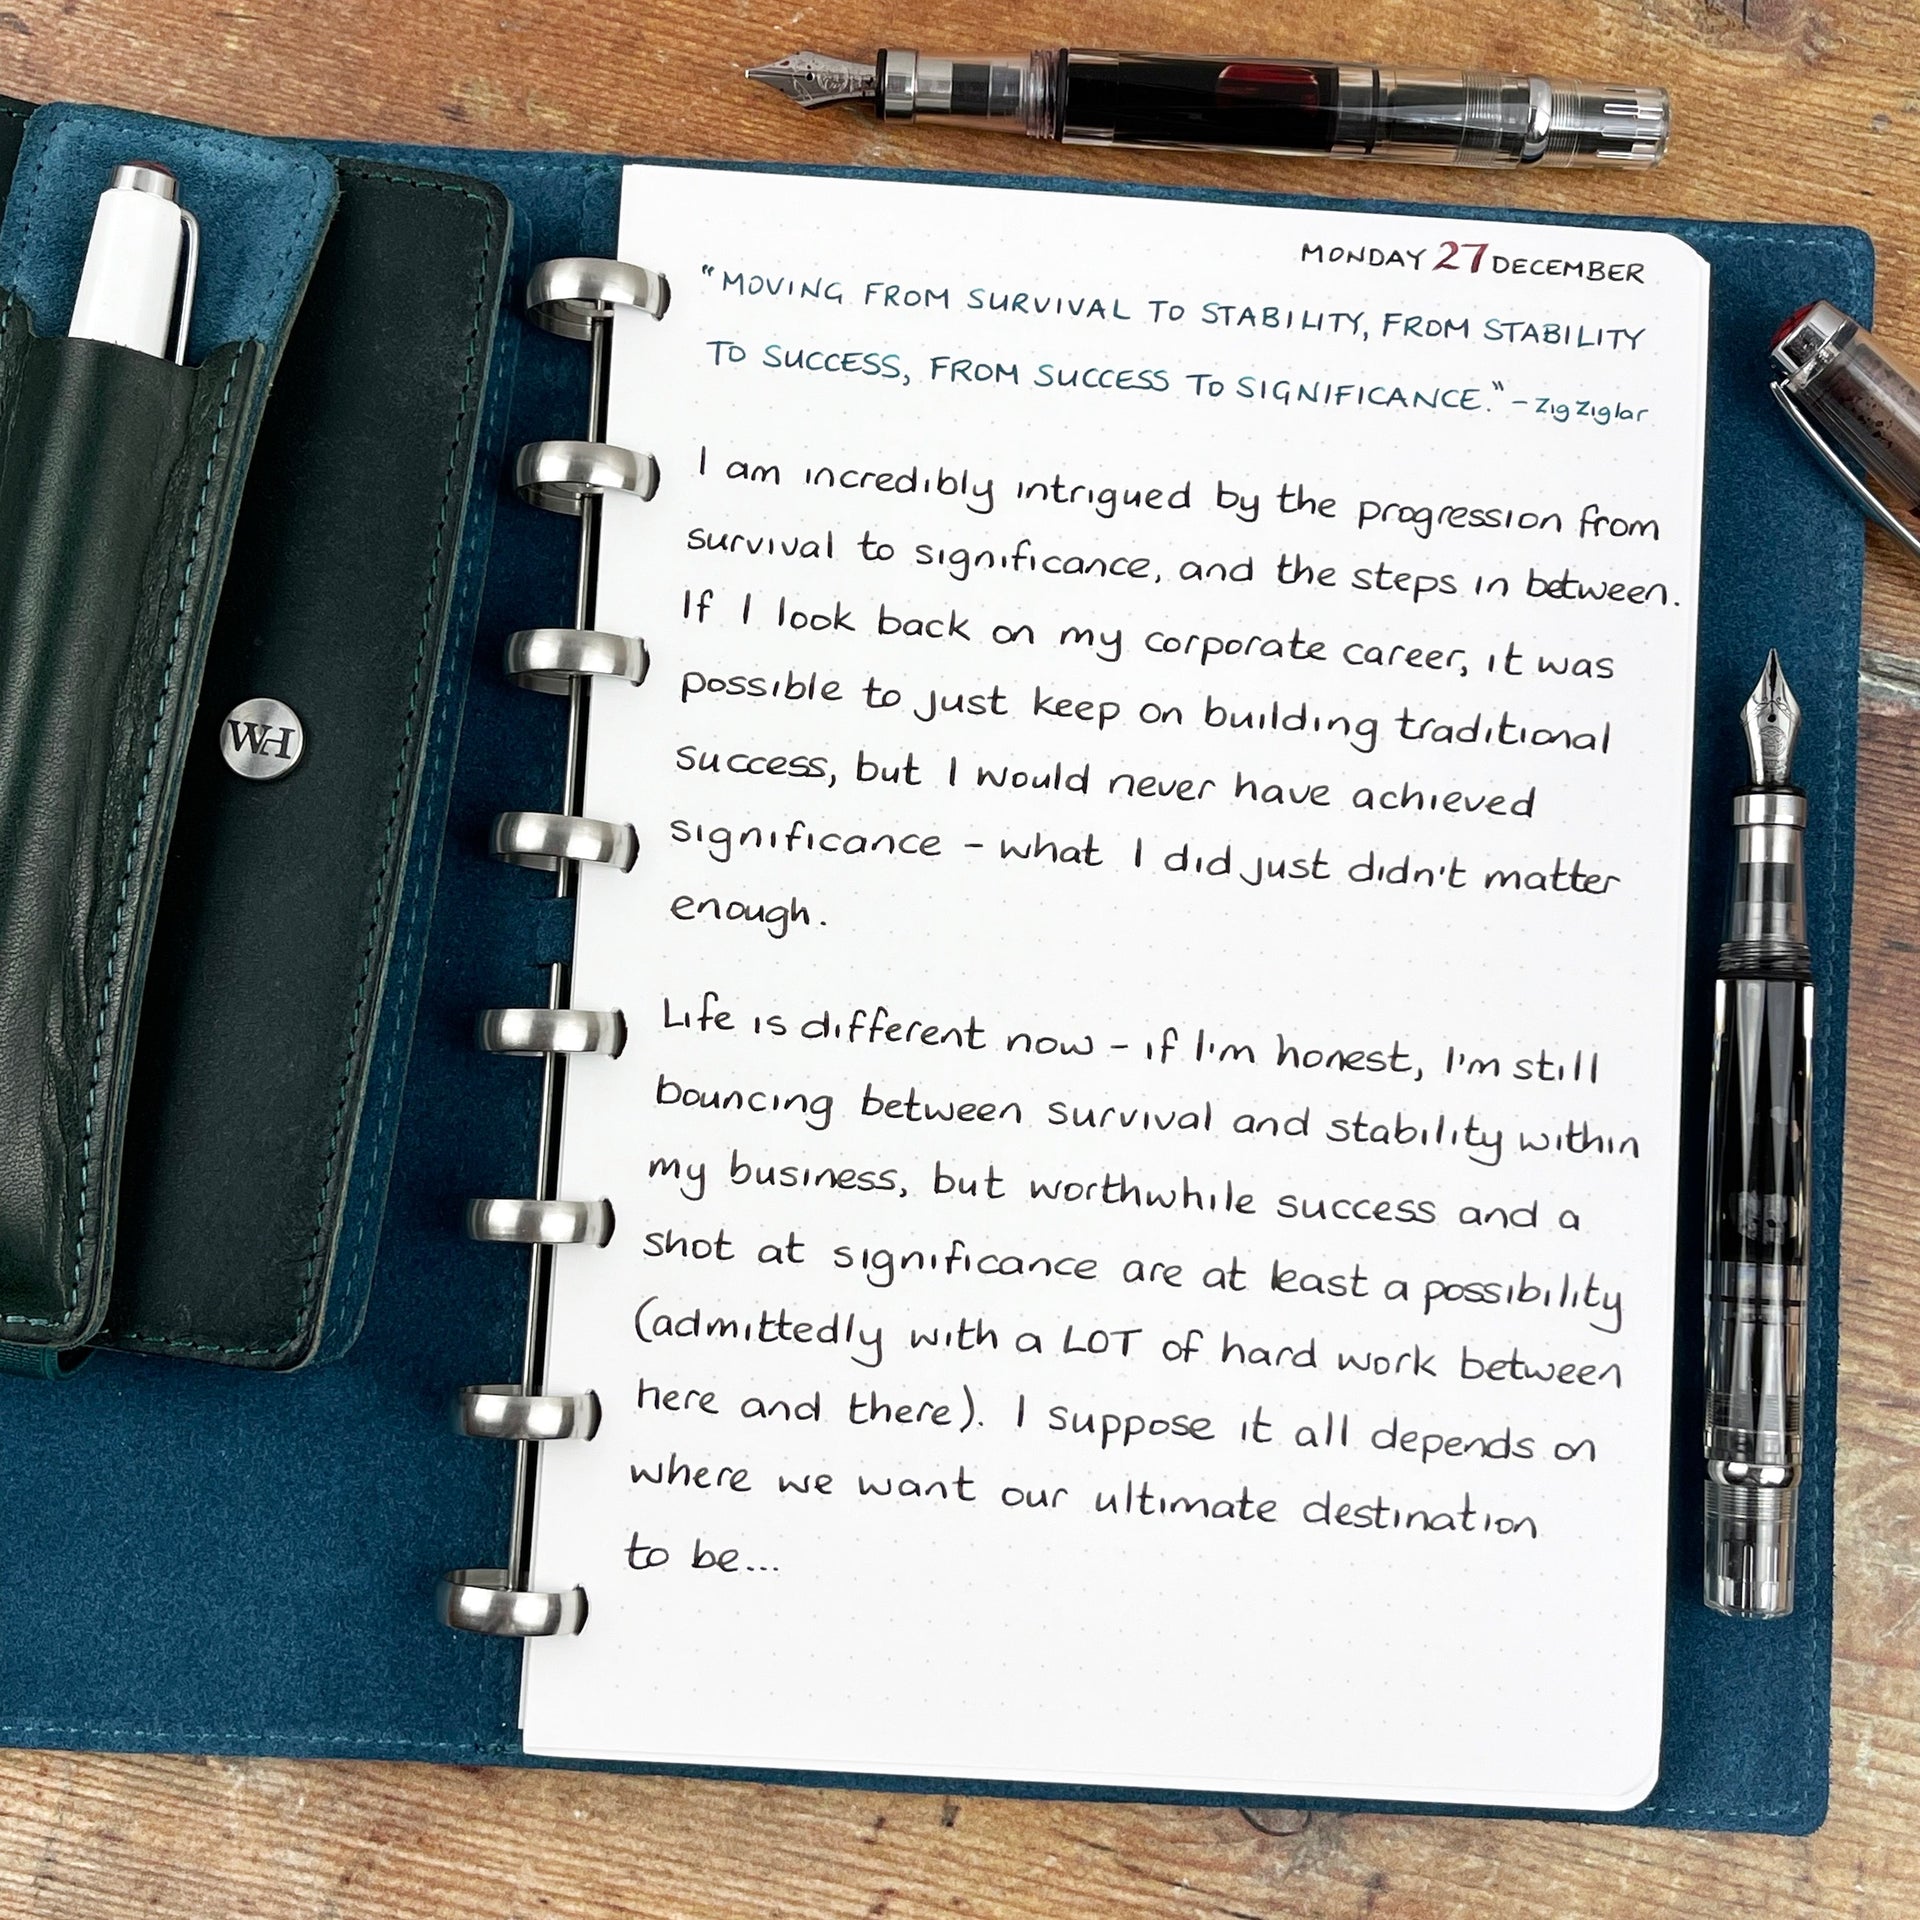 MONDAY 27 DECEMBER
“MOVING FROM SURVIVAL TO STABILITY, FROM STABILITY
TO SUCCESS, FROM SUCCESS TO SIGNIFICANCE.” – Zig Ziglar
I am incredibly intrigued by the progression from
survival to significance, and the steps in between.
If I look back on my corporate career, it was
possible to just keep on building traditional
success, but I would never have achieved
significance – what I did just didn't matter
enough.
Life is different now – if I'm honest, I'm still
bouncing between survival and stability within
my business, but worthwhile success and a
shot at significance are at least a possibility
(admittedly with a LOT of hard work between
here and there). I suppose it all depends on
where we want our ultimate destination
to be...
WH